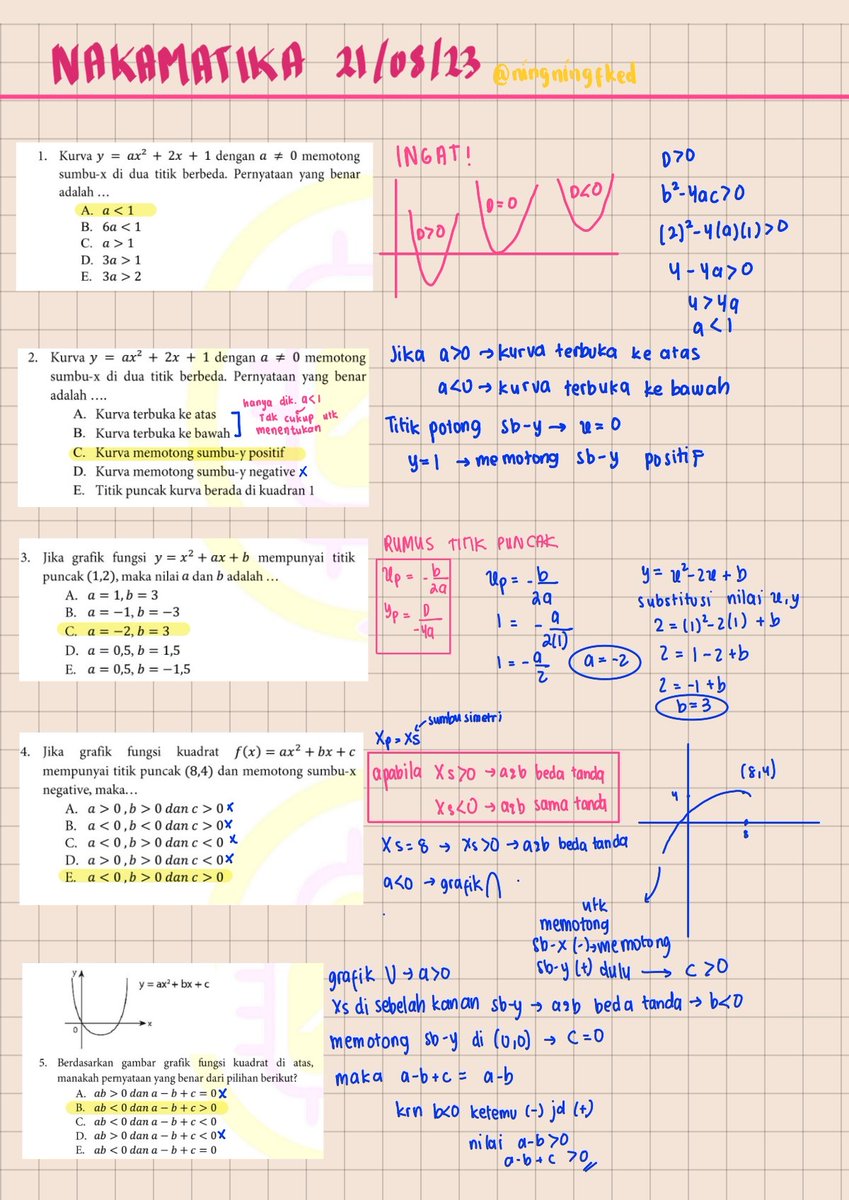 NAKAMATIKA 21/08/23 @ningningfked
1. Kurva y = ax² + 2x + 1 dengan a ≠ 0 memotong
sumbu-x di dua titik berbeda. Pernyataan yang benar
adalah …
A. a < 1
B. 6a < 1
C. a > 1
D. 3a > 1
E. 3a > 2
INGAT!
D>0
D=0
D<0
D>0
b²-4ac>0
(2)²-4(a)(1)>0
4-4a>0
4>4a
a<1
2. Kurva y = ax² + 2x + 1 dengan a ≠ 0 memotong
sumbu-x di dua titik berbeda. Pernyataan yang benar
adalah ….
A. Kurva terbuka ke atas
B. Kurva terbuka ke bawah
C. Kurva memotong sumbu-y positif
D. Kurva memotong sumbu-y negative x
E. Titik puncak kurva berada di kuadran 1
hanya dik. a<1
Tdk cukup utk
menentukan
Jika a>0 → kurva terbuka ke atas
a<0 → kurva terbuka ke bawah
Titik potong sb-y → x=0
y=1 → memotong sb-y positif
3. Jika grafik fungsi y = x² + ax + b mempunyai titik
puncak (1,2), maka nilai a dan b adalah …
A. a = 1, b = 3
B. a = −1, b = −3
C. a = −2, b = 3
D. a = 0,5, b = 1,5
E. a = 0,5, b = −1,5
RUMUS TITIK PUNCAK
xp = -b/2a
yp = D/-4a
xp = -b/2a
1 = -a/2(1)
1 = -a/2
a=-2
y= x²-2x+b
substitusi nilai x,y
2=(1)²-2(1)+b
2=1-2+b
2=-1+b
b=3
4. Jika grafik fungsi kuadrat f(x) = ax² + bx + c
mempunyai titik puncak (8,4) dan memotong sumbu-x
negative, maka…
A. a > 0, b > 0 dan c > 0 x
B. a < 0, b < 0 dan c > 0 x
C. a < 0, b > 0 dan c < 0 x
D. a > 0, b > 0 dan c < 0 x
E. a < 0, b > 0 dan c > 0
Xp = Xs
sumbu simetri
apabila Xs>0 → a&b beda tanda
Xs<0 → a&b sama tanda
Xs=8 → Xs>0 → a&b beda tanda
a<0 → grafik ∩
(8,4)
4
8
utk
memotong
sb-x (-) → memotong
sb-y (+) dulu → c>0
y
y = ax² + bx + c
0
x
5. Berdasarkan gambar grafik fungsi kuadrat di atas,
manakah pernyataan yang benar dari pilihan berikut?
A. ab > 0 dan a − b + c = 0 x
B. ab < 0 dan a − b + c > 0
C. ab < 0 dan a − b + c < 0
D. ab > 0 dan a − b + c < 0 x
E. ab < 0 dan a − b + c = 0
grafik U → a>0
Xs di sebelah kanan sb-y → a&b beda tanda → b<0
memotong sb-y di (0,0) → c=0
maka a-b+c = a-b
krn b<0 ketemu (-) jd (+)
nilai a-b>0
a-b+c >0